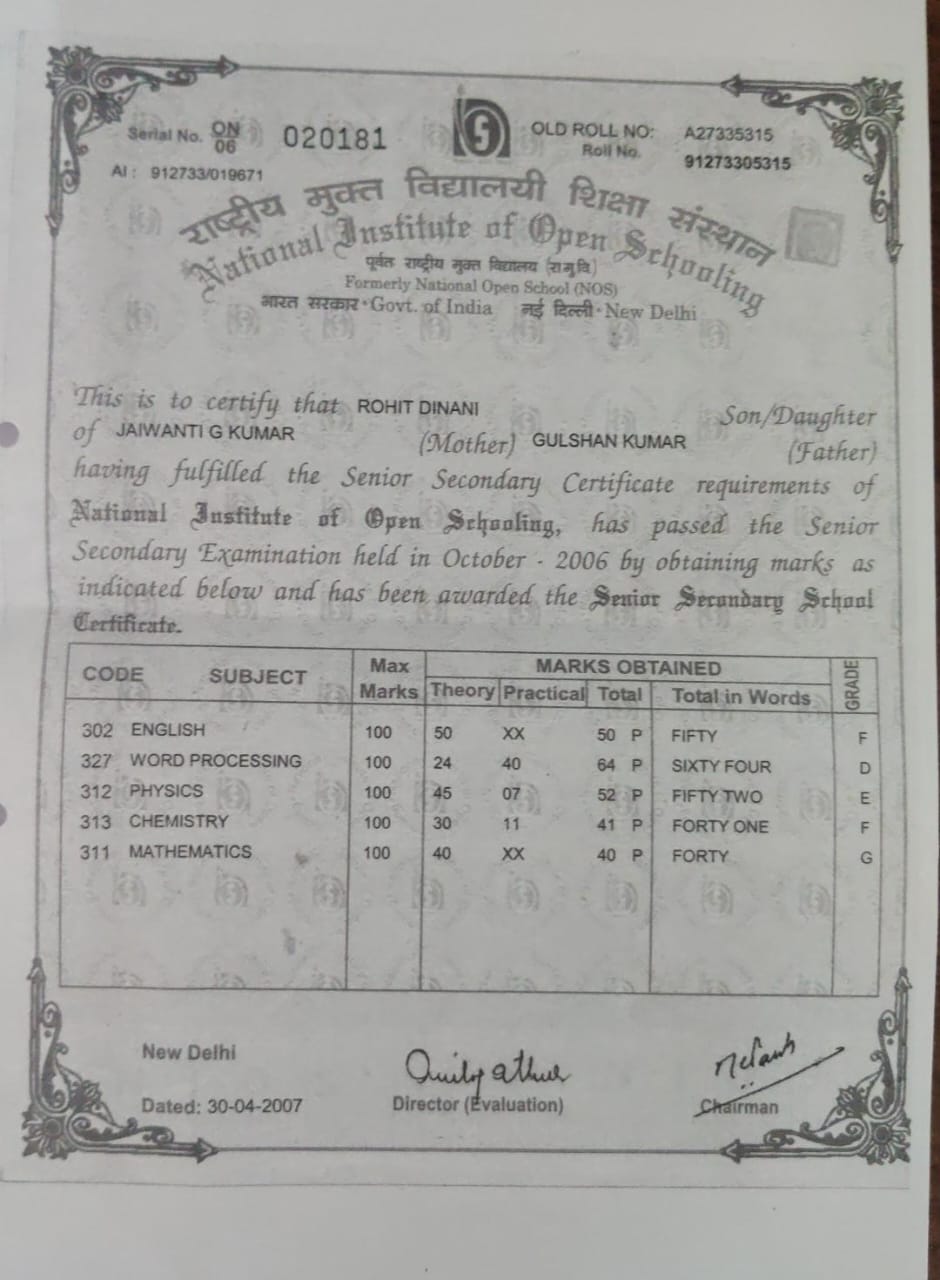 Serial No. ON 06 020181 OLD ROLL NO: A27335315
Roll No. 91273305315
AI : 912733/019671
राष्ट्रीय मुक्त विद्यालयी शिक्षा संस्थान
National Institute of Open Schooling
पूर्वत राष्ट्रीय मुक्त विद्यालय (रा मु वि)
Formerly National Open School (NOS)
भारत सरकार · Govt. of India नई दिल्ली · New Delhi
This is to certify that ROHIT DINANI Son/Daughter
of JAIWANTI G KUMAR (Mother) GULSHAN KUMAR (Father)
having fulfilled the Senior Secondary Certificate requirements of
National Institute of Open Schooling, has passed the Senior
Secondary Examination held in October - 2006 by obtaining marks as
indicated below and has been awarded the Senior Secondary School
Certificate.
CODE SUBJECT Max Marks MARKS OBTAINED GRADE
Theory Practical Total Total in Words
302 ENGLISH 100 50 XX 50 P FIFTY F
327 WORD PROCESSING 100 24 40 64 P SIXTY FOUR D
312 PHYSICS 100 45 07 52 P FIFTY TWO E
313 CHEMISTRY 100 30 11 41 P FORTY ONE F
311 MATHEMATICS 100 40 XX 40 P FORTY G
New Delhi
Dated: 30-04-2007 Director (Evaluation) Chairman